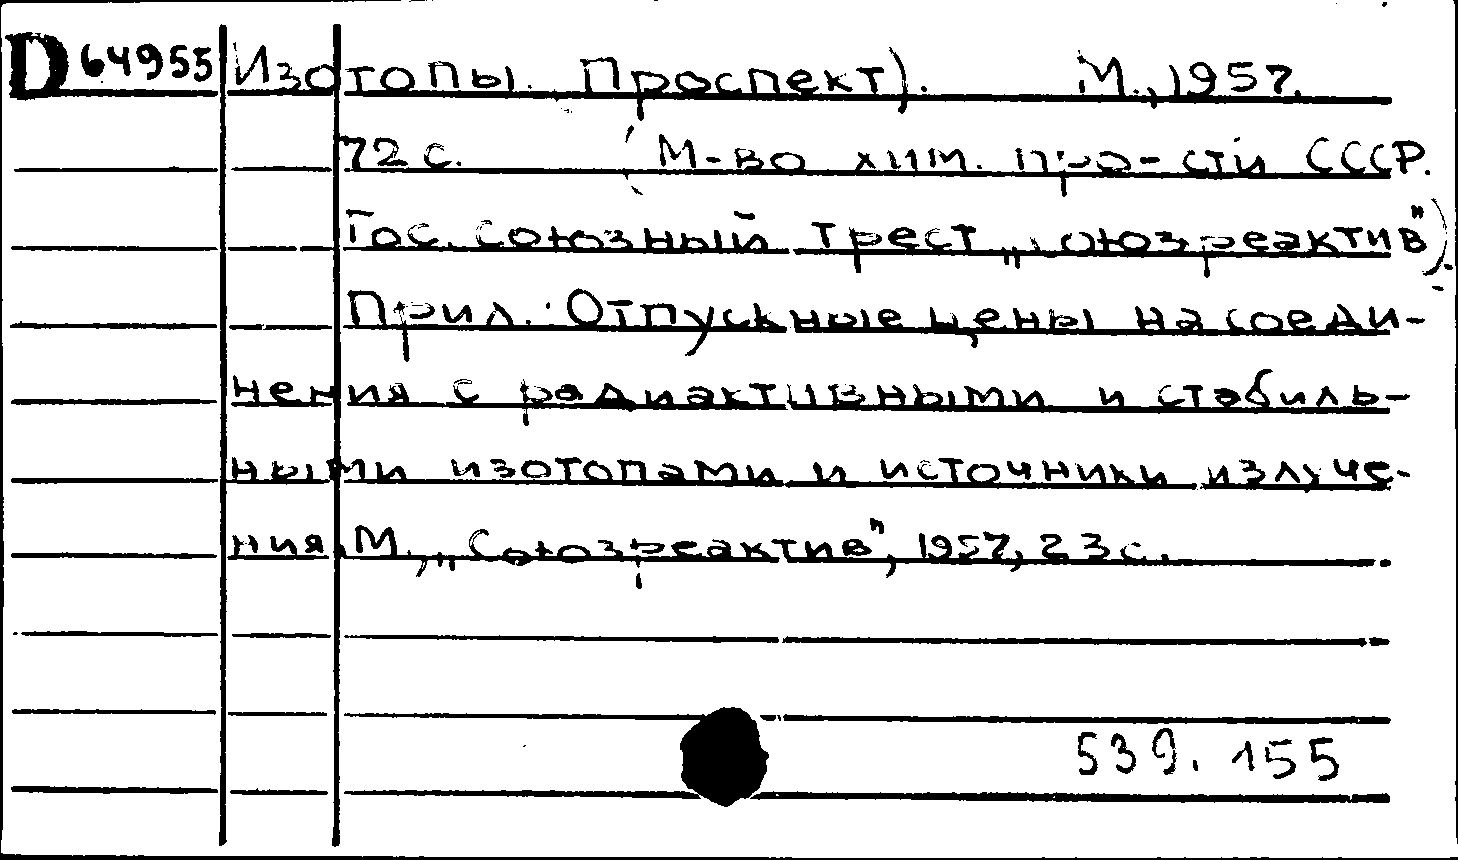 D 64955 Изотопы. Проспект). М., 1957.
72 с. (М-во хим. про-сти СССР.
Гос. союзный трест „Союзреактив").
Прил.: Отпускные цены на соеди-
нения с радиактивными и стабиль-
ными изотопами и источники излуче-
ния. М., „Союзреактив", 1957, 23 с.
539.155